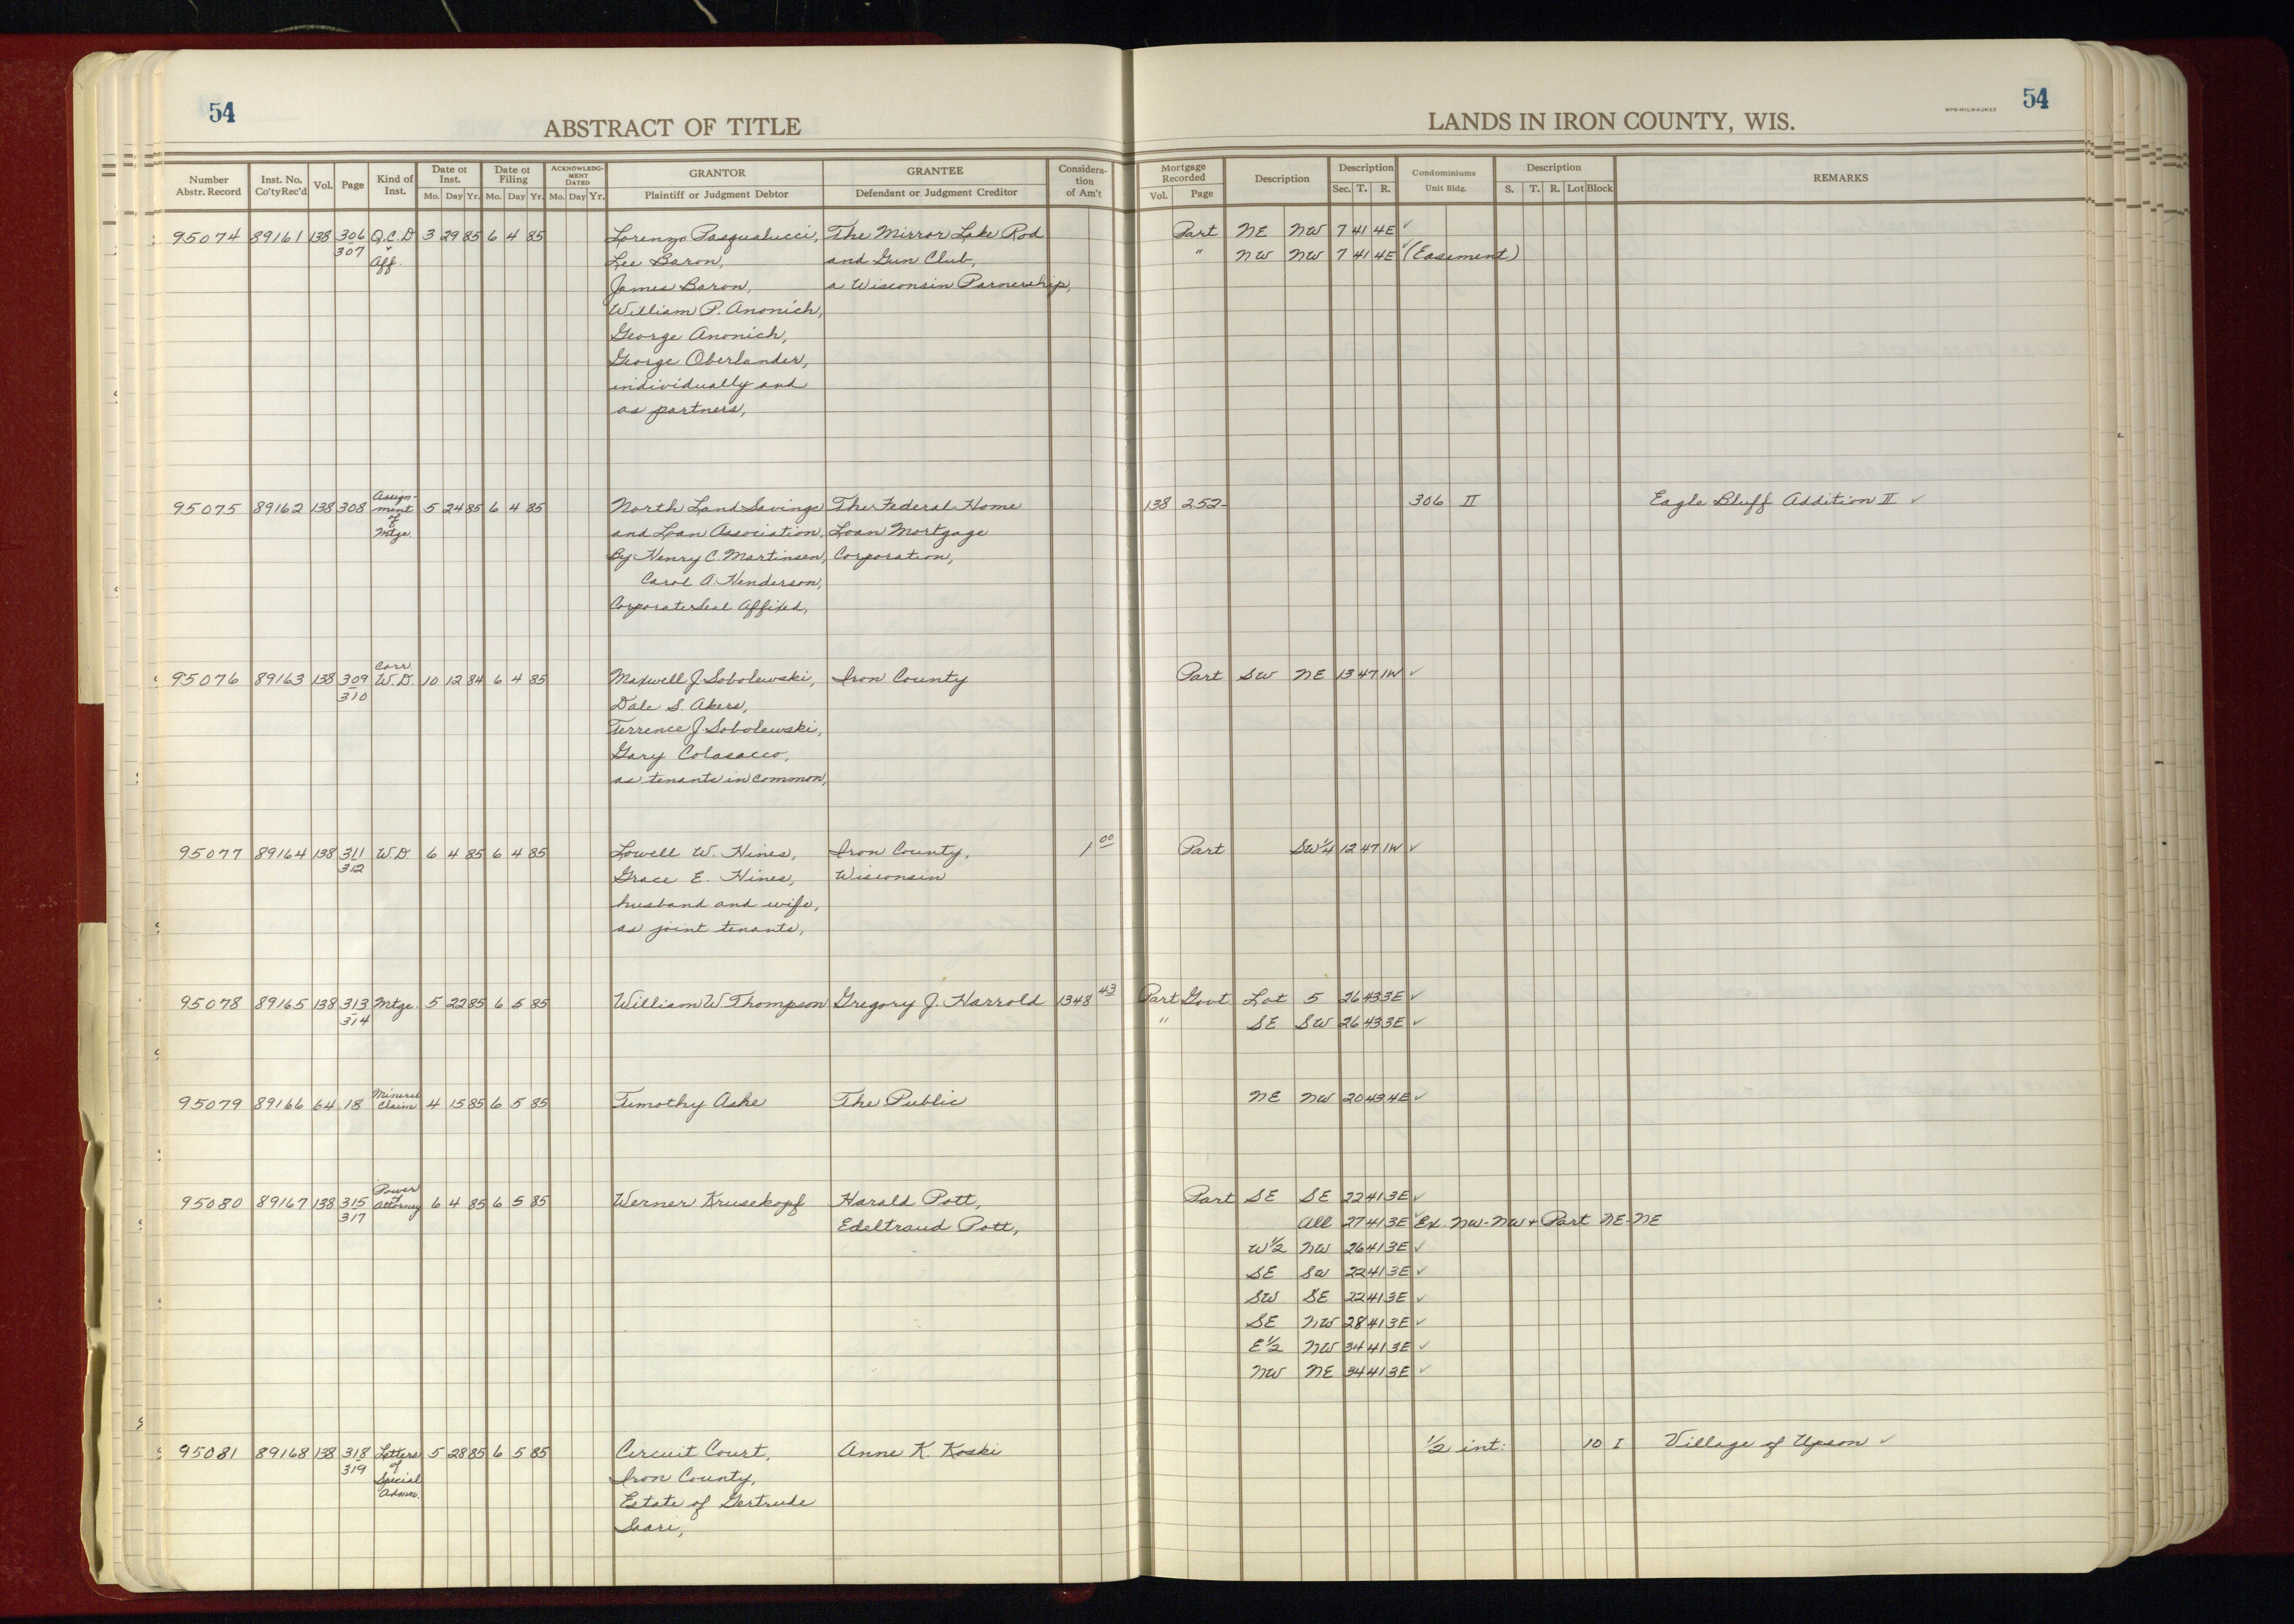 54
ABSTRACT OF TITLE
Number Abstr. Record Inst. No. Co'tyRec'd Vol. Page Kind of Inst. Date of Inst. Mo. Day Yr. Date of Filing Mo. Day Yr. ACKNOWLEDG-MENT DATED Mo. Day Yr. GRANTOR Plaintiff or Judgment Debtor GRANTEE Defendant or Judgment Creditor Considera-tion of Am't
LANDS IN IRON COUNTY, WIS.
WPB-MILWAUKEE
54
Mortgage Recorded Vol. Page Description Description Sec. T. R. Condominiums Unit Bldg. Description S. T. R. Lot Block REMARKS
95074 89161 138 306 Q.C.D 3 29 85 6 4 85 Lorenzo Pasqualucci, The Mirror Lake Rod Part NE NW 7 41 4E ✓
307 + Aff. Lee Baron, and Gun Club, " NW NW 7 41 4E ✓ (Easement)
James Baron, a Wisconsin Parnership,
William P. Anonich,
George Anonich,
George Oberlander,
individually and
as partners,
95075 89162 138 308 Assign- 5 24 85 6 4 85 North Land Savings The Federal Home 138 252 306 II Eagle Bluff Addition II ✓
ment of and Loan Association, Loan Mortgage
Mtge. By Henry C. Martinsen, Corporation,
Carol A. Henderson,
Corporate Seal Affixed,
95076 89163 138 309 Corr. W.D. 10 12 84 6 4 85 Maxwell J. Sobolewski, Iron County Part SW NE 13 47 1W ✓
310 Dale S. Akers,
Terrence J. Sobolewski,
Gary Colasacco,
as tenants in common,
95077 89164 138 311 W.D. 6 4 85 6 4 85 Lowell W. Hines, Iron County, 1 00 Part SW¼ 12 47 1W ✓
312 Grace E. Hines, Wisconsin
husband and wife,
as joint tenants,
95078 89165 138 313 Mtge. 5 22 85 6 5 85 William W. Thompson Gregory J. Harrold 1348 43 Part Govt. Lot 5 26 43 3E ✓
314 " SE SW 26 43 3E ✓
95079 89166 64 18 Mineral Claim 4 15 85 6 5 85 Timothy Ashe The Public NE NW 20 43 4E ✓
95080 89167 138 315 Power of Attorney 6 4 85 6 5 85 Werner Krusekopf Harald Pott, Part SE SE 22 41 3E ✓
317 Edeltraud Pott, All 27 41 3E ✓ Ex. NW-NW + Part NE-NE
W½ NW 26 41 3E ✓
SE SW 22 41 3E ✓
SW SE 22 41 3E ✓
SE NW 28 41 3E ✓
E½ NW 34 41 3E ✓
NW NE 34 41 3E ✓
95081 89168 138 318 Letters 5 28 85 6 5 85 Circuit Court, Anne K. Koski ½ int. 10 I Village of Upson ✓
319 of Special Iron County,
Admn. Estate of Gertrude
Saari,